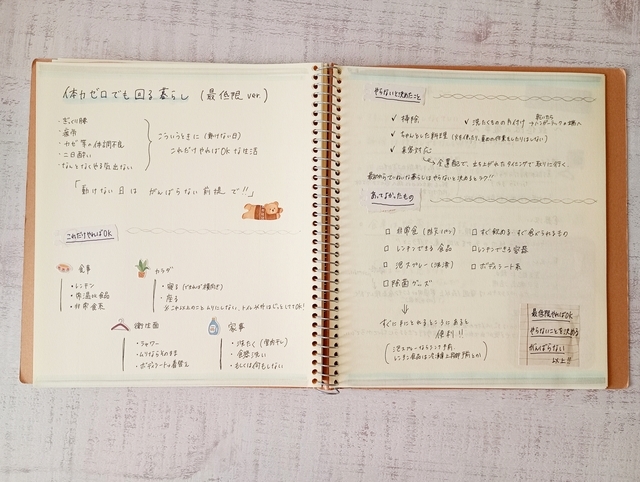 体力ゼロでも回る暮らし (最低限 ver.)
・ぎっくり腰
・産前
・カゼ等の体調不良
・二日酔い
・なんとなくやる気出ない
こういうときに (動けない日)
これだけやればOKな生活
「動けない日は がんばらない前提で!!」
これだけやればOK
食事
・レンチン
・常温保存食品
・非常食系
カラダ
・寝る (できれば横向き)
・座る
衛生面
・シャワー
・ムリならそのまま
・ボディシート+着替え
家事
・洗たく (室内干し)
・食器洗い
・もしくは何もしない
やらないと決めたこと
✓ 掃除
✓ 洗たくものの片付け
✓ ちゃんとした料理
✓ 来客対応
あってよかったもの
□ 非常食
□ すぐ飲める・すぐ食べられるもの
□ レンチンできる食品
□ レンチンできる容器
□ 泡スプレー (洗濯)
□ ボディシート系
□ 除菌グッズ
↓
すぐ手にとれるところにあると
便利!!
最低限やればOK
やらないことを決める
がんばらない
以上!!